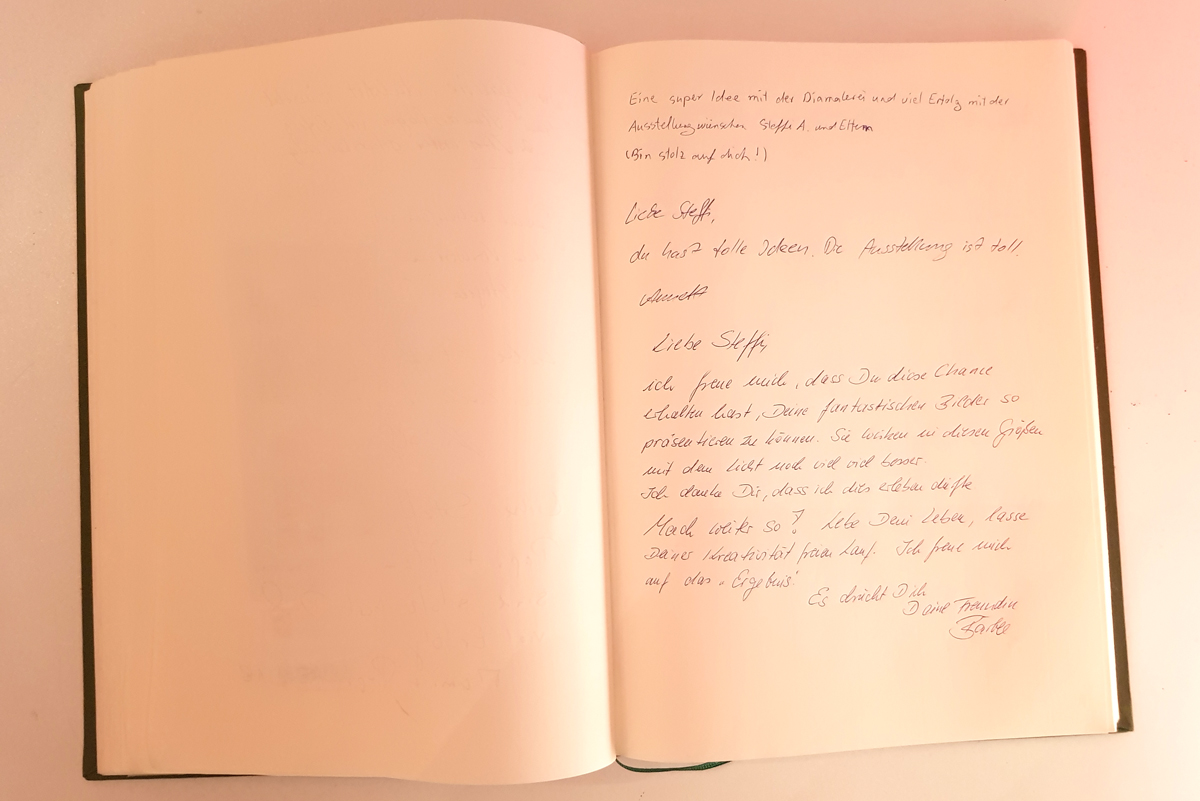 Eine super Idee mit der Diamalerei und viel Erfolg mit der
Ausstellung wünschen Steffi A. und Eltern
(Bin stolz auf dich!)
Liebe Steffi,
du hast tolle Ideen. Die Ausstellung ist toll.
Liebe Steffi,
ich freue mich, dass Du diese Chance
erhalten hast, Deine fantastischen Bilder so
präsentieren zu können. Sie wirken in diesen Größen
mit dem Licht noch viel viel besser.
Ich danke Dir, dass ich dies erleben dürfte
Mach weiter so! Lebe Dein Leben, lasse
Deiner Kreativität freien Lauf. Ich freue mich
auf das „Ergebnis"
Es drückt Dich
Deine Freundin